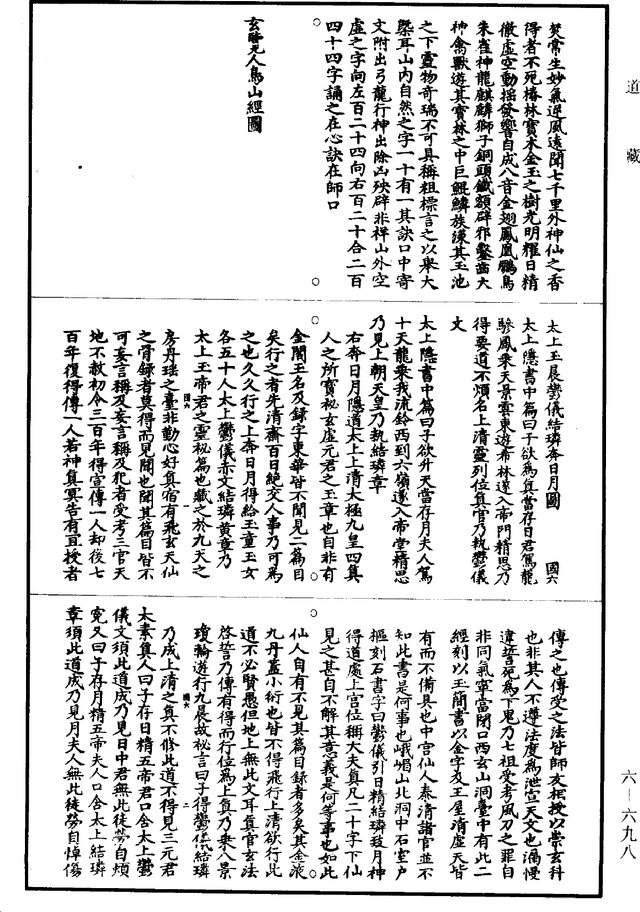 道藏
焚常生妙氣逆風遠聞七千里外神仙之香
得者不死椿林寶木金玉之樹光明耀日精
徹虛空動搖發響自成八音金翅鳳凰鵬鳥
朱雀神龍麒麟獅子銅頭鐵額辟邪鑿齒大
神禽獸遊其寶林之中巨鯤鱗族湊其玉池
之下靈物奇瑞不可具稱粗標言之以舉大
槩耳山內自然之字一十有一其訣口中寄
文附出弓龍行神出除凶殃辟非祥山外空
虛之字向左百二十四向右百二十合二百
四十四字誦之在心訣在師口
玄覽元人鳥山經圖
太上玉晨鬱儀結璘奔日月圖
國六
太上隱書中篇曰子欲為真當存日君駕龍
驂鳳乘天景雲東遊希林遂入帝門精思乃
得要道不煩名上清靈列位真官乃執鬱儀
文
太上隱書中篇曰子欲升天當存月夫人駕
十天龍乘我流鈴西到六嶺遂入帝堂精思
乃見上朝天皇乃執結璘章
右奔日月隱道太上上清太極九皇四真
人之所寶祕玄虛元君之玉章也自非有
金閣玉名及錄字東華皆不聞見二篇目
矣行之者先清齋百日絕交人事乃可為
之也久久行之上奔日月得給玉童玉女
各五十人太上鬱儀赤文結璘黃章乃
太上玉帝君之靈祕篇也藏之於九天之
國六
一
房丹瑶之臺非勤心好真宿有飛玄天仙
之骨錄者莫得而見聞也聞其篇目皆不
可妄言稱及妄言稱及犯者受考三官天
地不赦初令三百年得宣傳一人却後七
百年復得傳一人若神真冥告有宜授者
傳之也傳受之法皆師友相授以崇玄科
也非其人不遵法度為泄宣天文也漏慢
違誓死為下鬼乃七祖受考風刀之罪自
非同氣寧當閉口西玄山洞臺中有此二
經刻以玉簡書以金字及王屋清虛天皆
有而不備具也中宮仙人泰清諸官並不
知此書是何事也峨嵋山北洞中石室戶
樞刻石書字曰鬱儀引日精結璘致月神
得道處上宮位稱大夫真凡二十字下仙
見之甚自不解其意義是何等事也如此
仙人自有不見其篇目錄者多矣其金液
九丹蓋小術也皆不得飛行上清欲行此
道不必賢愚但地上無此文耳真官玄法
啓誓乃傳有得而行位為上真乃乘八景
瓊輪遊行九晨故祕言曰子得鬱儀結璘
國六
二
乃成上清之真不修此道不得見三元君
太素真人曰子存日精五帝君口含太上鬱
儀文須此道成乃見日中君無此徒勞自煩
寃又曰子存月精五帝夫人口含太上結璘
章須此道成乃見月夫人無此徒勞自悼傷
六—六九八